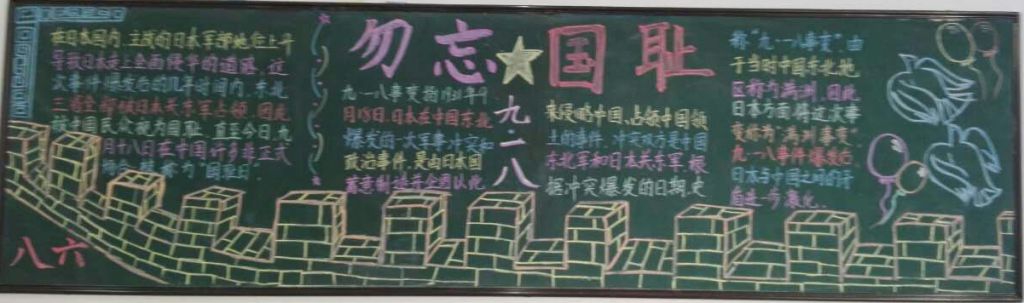 勿忘★国耻
九·一八
在日本国内，主战的日本军
导致日本走上全面侵华的道路，这
次事件爆发后的几年时间内，东北
三省全部被日本关东军占领，因此
被中国民众视为国耻，直至今日，九
月十八日在中国许多非正式
场合被称为"国耻日"。
九一八事变指1931年9
月18日，日本在中国东北
爆发的一次军事冲突和
政治事件，是由日本国
蓄意制造并企图以此
来侵略中国、占领中国领
土的事件，冲突双方是中国
东北军和日本关东军，根
据冲突爆发的日期，史
称"九·一八事变"，由
于当时中国东北地
区称为满洲，因此
日本方面将这次事
变称为"满洲事变"。
九一八事件爆发后
日本与中国之间的矛
盾进一步激化。
八六